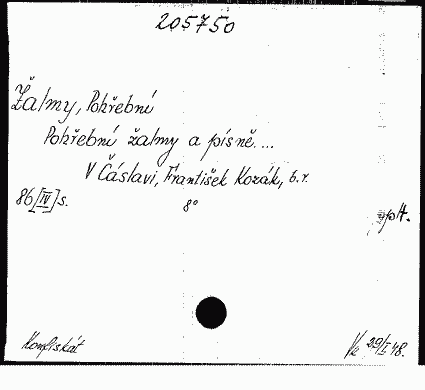 205750
Žalmy, Pohřební
Pohřební žalmy a písně...
V Čáslavi, František Kozák, b.r.
86[IV]s. 8°
Konfiskát
29/I 48.